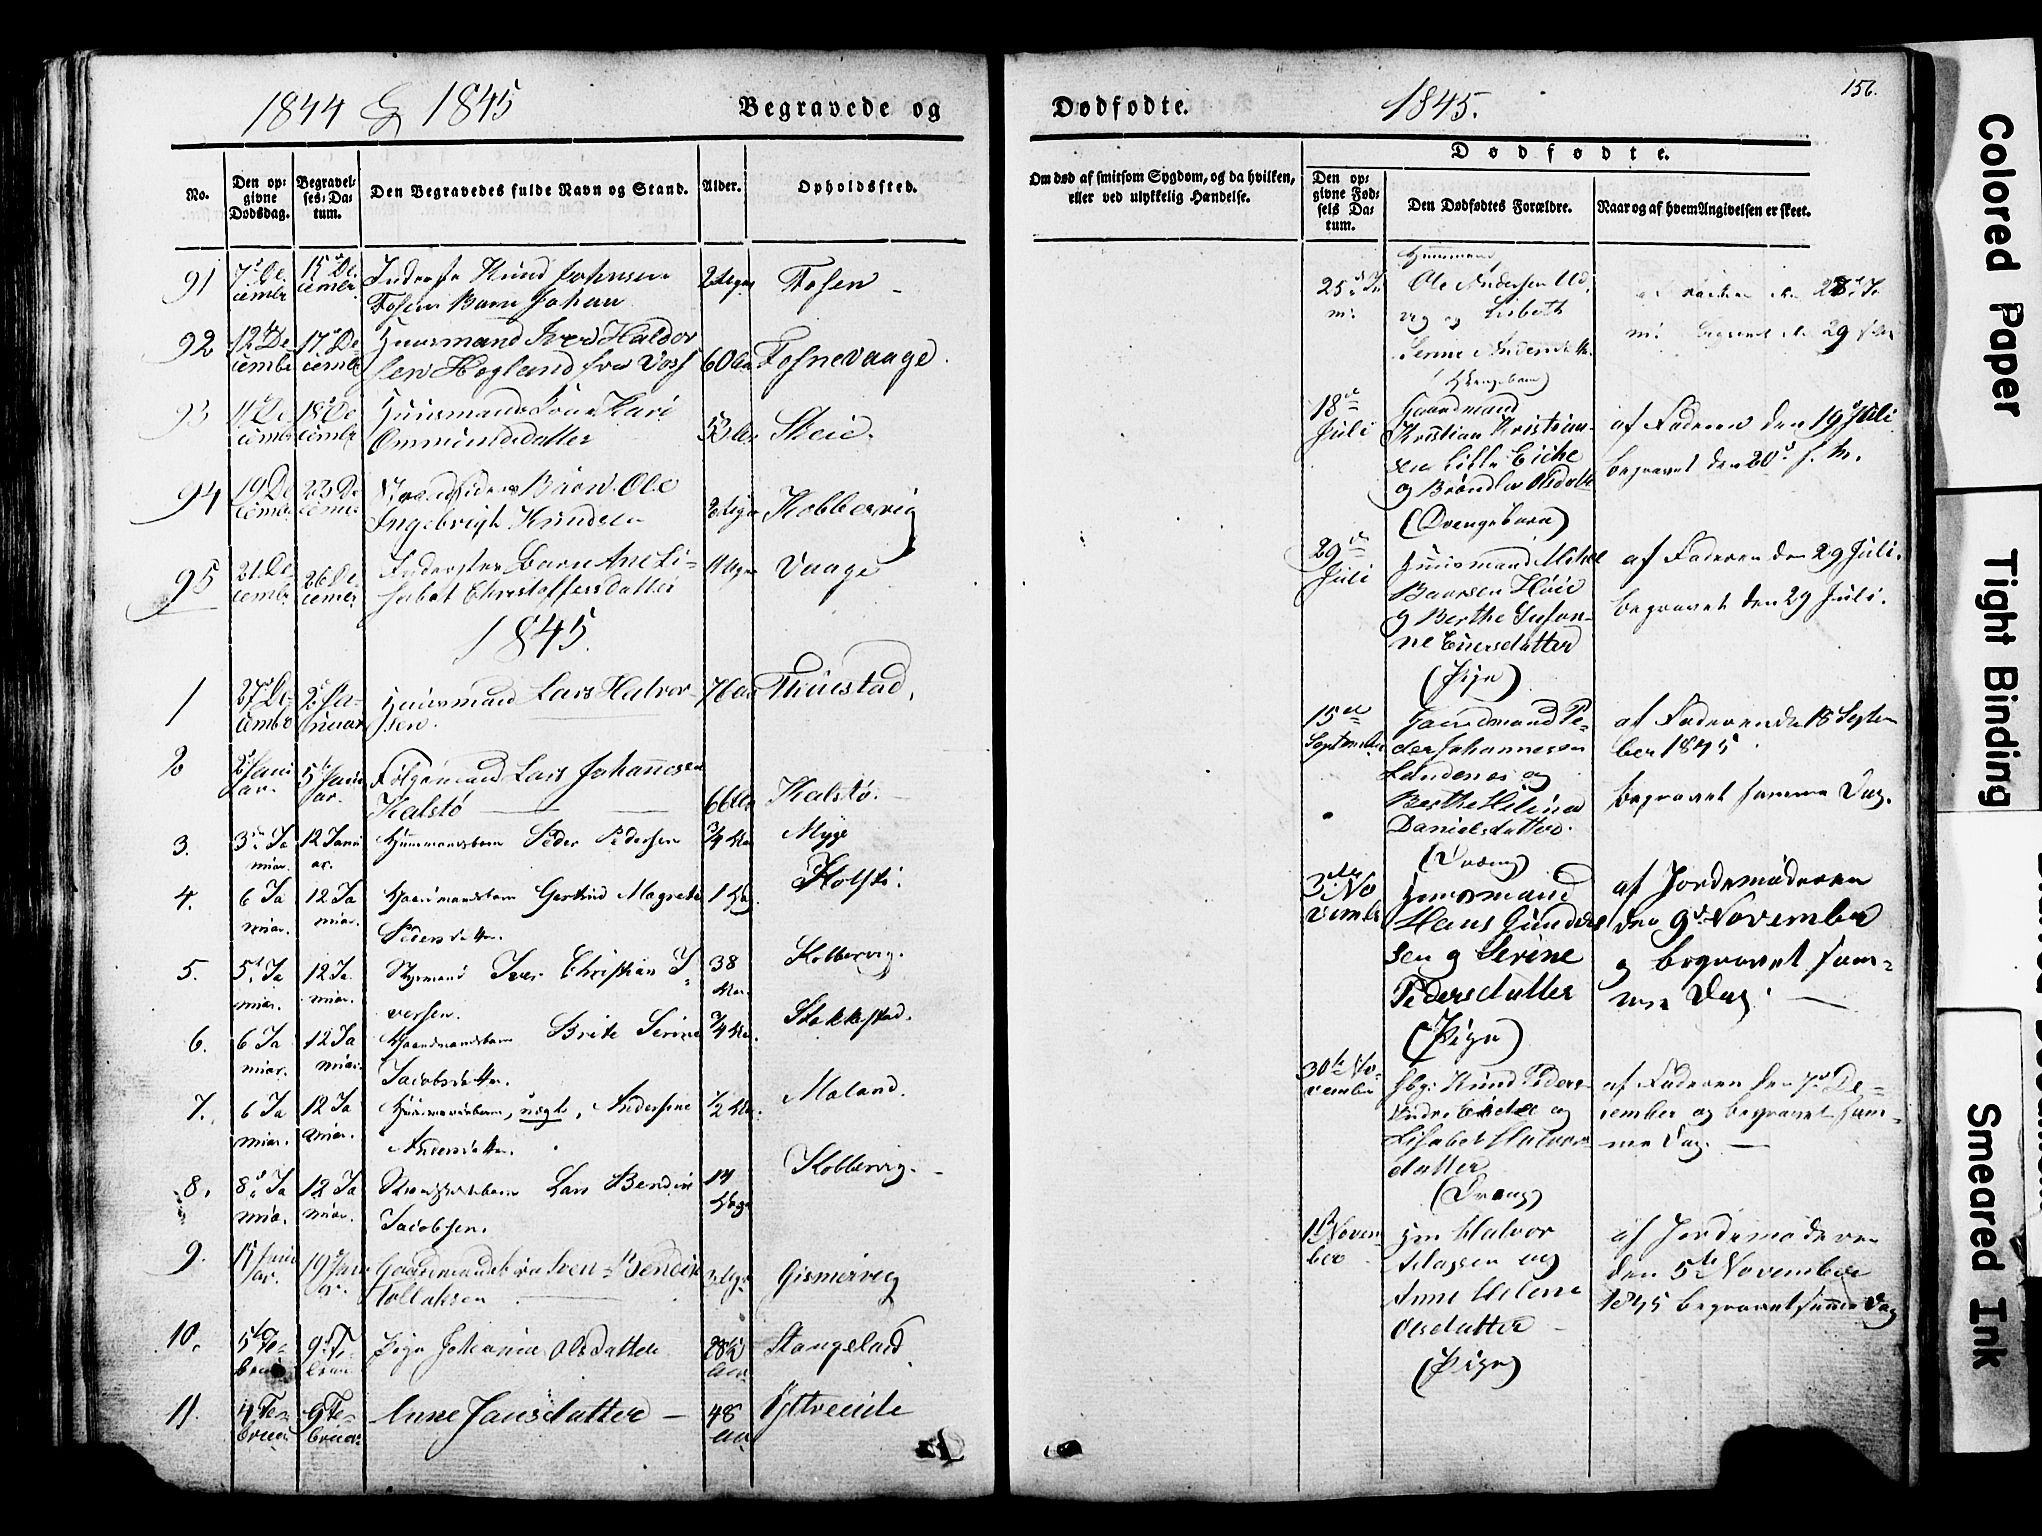 1844 & 1845
Begravede og
No.
Den op-
givne
Dødsdag.
Begravel-
ses-Da-
tum.
Den Begravedes fulde Navn og Stand.
Alder.
Opholdssted.
91
7d De
cembr
15d De
cembr
Inderste Knud Johnsen
Fosens Barn Johan
Fosen
92
12te De
cembr
17d De
cembr
Huusmand Iver Haldor
sen Hogland fra Voss
60 Aar
Fosnevaage.
93
De
cembr
18d De
cembr
Huusmands Kone Kari
Ommundsdatter
53 Aar
Skeie.
94
19 De
cembr
23 De
cembr
Barn Ole
Ingebrigt Knudsen
Kobbervig
95
21 De-
cembr
26 De
cembr
Inderstes Barn Ane Li-
sabet Christoffersdatter
Vaage
1845.
1
27d De-
cembr
2d Ja-
nuar
Huusmand Lars Halvor
sen.
76 Aar
Thuestad.
2
2d Janu
ar.
5te Janu
ar.
Følgemand Lars Johannesen
Kalstø
66 Aar
Kalstø.
3.
3die Ja
nuar.
12 Janu
ar.
Huusmandsbarn Peder Pedersen
3/4 Aar
Myge
4.
6 Ja
nuar.
12 Ja
nuar.
Gaardmandsbarn Gertrud Magrete
Pedersdatter.
1
5.
5te Ja
nuar.
12 Ja
nuar.
Iver Christian I-
versen.
38
Aar.
Kobbervig.
6.
6 Ja
nuar.
12 Ja
nuar.
Gaardmandsbarn Brite Serine
Jacobsdatter.
3/4 Aar.
Stakkestad.
7.
6 Ja
nuar.
12 Ja
nuar.
Huusmandsbarn, uægte, Andersine
Andersdatter.
1/2 Aar.
Moland.
8.
8d Ja
nuar.
12 Ja
nuar.
Lars Bendix
Jacobsen.
14
Dage
Kobbervig.
9.
Janu
ar.
19 Janu
ar.
Gaardmandsbarn Sven Bendix
Tollaksen
Gismervig
10.
5te Fe-
bruar
9d Fe-
bruar
Pige Johanna Olsdatter
Aar
Stangeland
11.
4 Fe-
bruar
9 Fe-
bruar
Anne Jansdatter
48
Aar
Yttreeide
Dødfødte.
1845.
156.
Om død af smitsom Sygdom, og da hvilken,
eller ved ulykkelig Hændelse.
Dødfødte.
Den op-
givne Fød-
sels Da-
tum.
Den Dødfødtes Forældre.
Naar og af hvem Angivelsen er skeet.
25d Ju
ni
Huusmand
Ole Andersen
og Lisbeth
Andersdatter
(Drengebarn)
af Faderen den 28d Ju
ni begravet d. 29
18de
Juli
Gaardmand
Kristian Kristian-
sen Lille Eidhe
og Olsdatter
(Drengebarn)
af Faderen den 19d Juli
begravet den 20d
29de
Juli
Huusmand
Baarsen Høie
og Berthe Susan-
ne Einersdatter
(Pige)
af Faderen den 29 Juli.
begravet den 29 Juli.
15de
September
Gaardmand Pe-
der Johannesen
Landenes og
Berthe Helena
Danielsdatter.
(Dreng)
af Faderen de 18 Septem
ber 1845.
begravet samme Dag.
3die No
vembr
Huusmand
Hans Gunders
sen og Serine
Pedersdatter
(Pige)
af Jordemoderen
den 9d November
og begravet sam-
me Dag.
30te No-
vember
Gbr. Knud Peders.
Indre Eidhe og
Lisabet Halvors
datter
(Dreng)
af Faderen den 7de De-
cember og begravet sam-
me Dag.
1ste Novem-
ber
Hm Halvor
Aslagsen og
Anne Helene
Olsdatter
(Pige)
af Jordemoderen
den 5te November
1845 begravet samme Dag
Colored Paper
Tight Binding
Smeared Ink